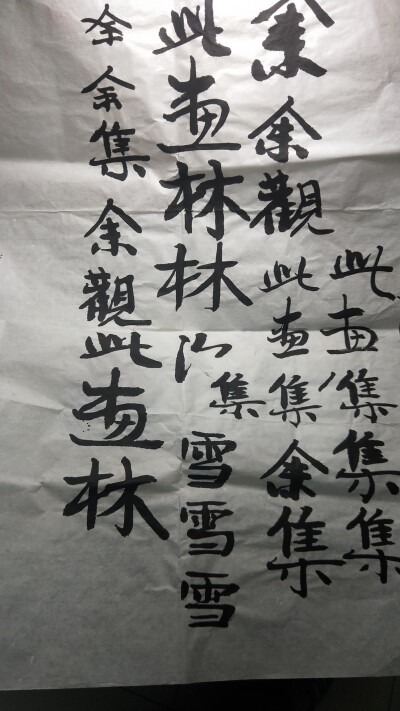 此畫集集集
余余觀此畫集余集
此畫林林集雪雪雪
余余集余觀此畫林